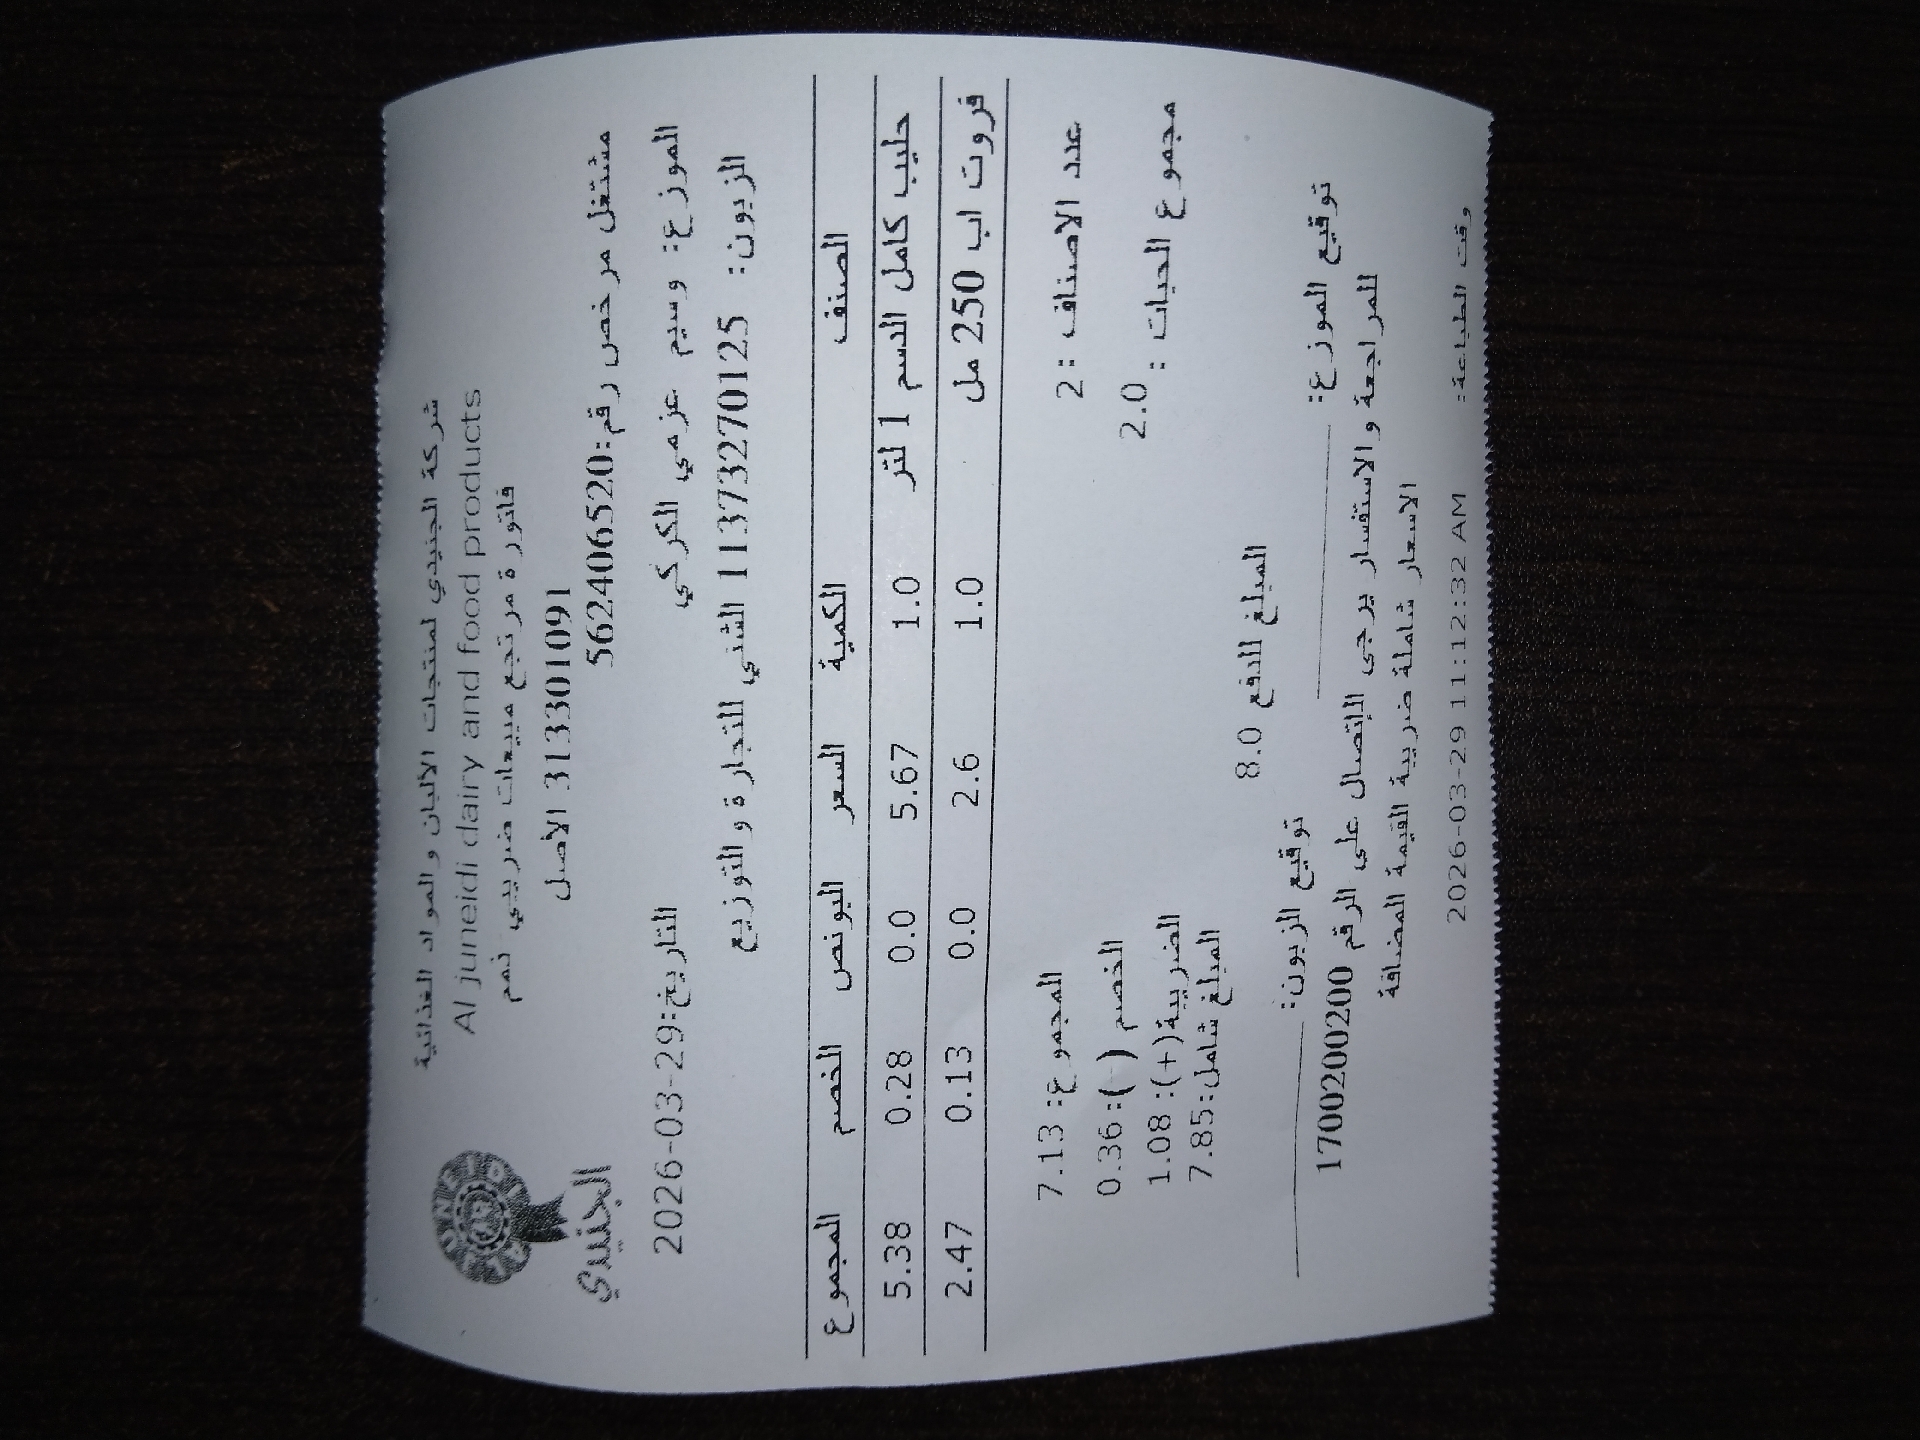 شركة الجنيدي لمنتجات الالبان والمواد الغذائية
Al juneidi dairy and food products
فاتورة مرتجع مبيعات ضريبي نمم
313301091 الاصل
مشتغل مرخص رقم:562406520
الجنيدي
الموزع: وسيم عزمي الكركي
التاريخ:29-03-2026
الزبون: 11373270125 الشني للتجارة والتوزيع
الصنف الكمية السعر البونص الخصم المجموع
حليب كامل الدسم 1 لتر 1.0 5.67 0.0 0.28 5.38
فروت اب 250 مل 1.0 2.6 0.0 0.13 2.47
عدد الاصناف :2 المجموع: 7.13
الخصم (-):0.36
مجموع الحبات : 2.0 الضريبة(+): 1.08
المبلغ شامل:7.85
المبلغ للدفع 8.0
توقيع الموزع: توقيع الزبون:
للمراجعة والاستفسار يرجى الاتصال على الرقم 1700200200
الاسعار شاملة ضريبة القيمة المضافة
وقت الطباعة: 2026-03-29 11:12:32 AM